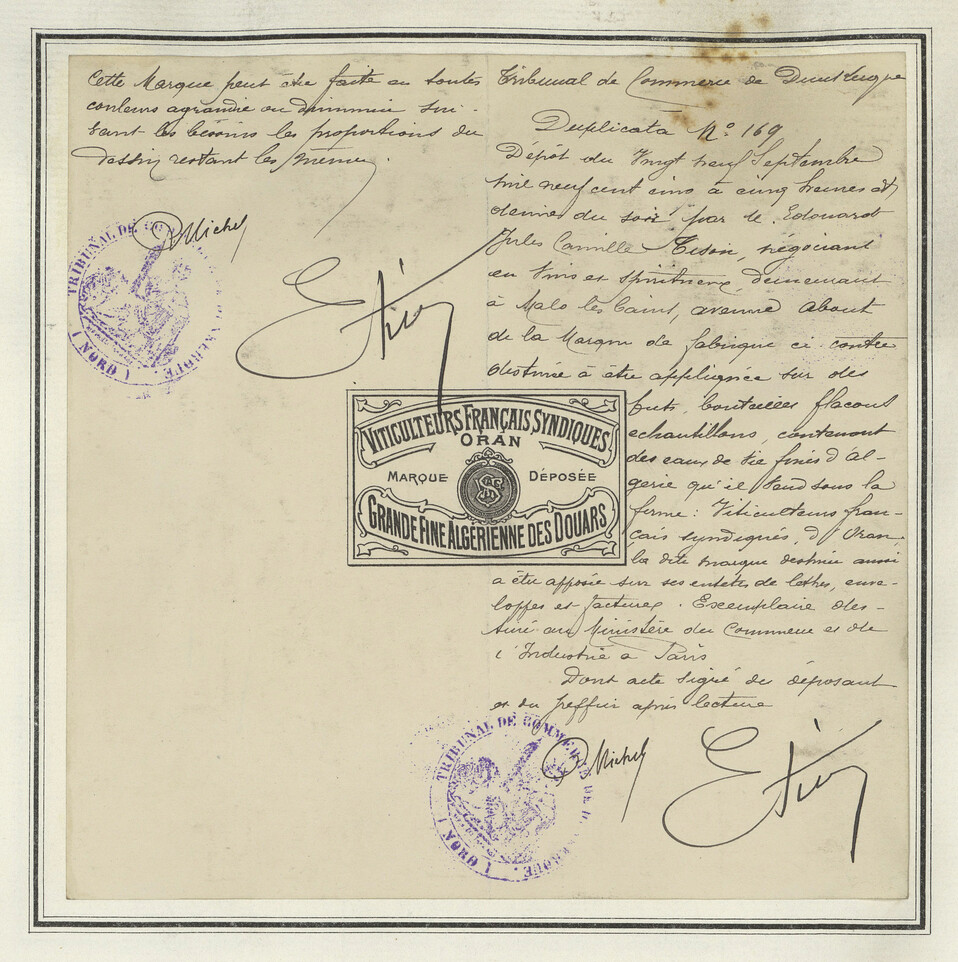 Cette Marque peut être faite en toutes
couleurs agrandie ou diminuée sui-
vant les besoins les proportions du
dessin restant les mêmes.
D Michel
TRIBUNAL DE COMMERCE DE DUNKERQUE. (NORD)
ETison
Tribunal de Commerce de Dunkerque
Duplicata No. 169
Dépôt du Vingt neuf Septembre
mil neuf cent cinq à cinq heures et
demie du soir par M. Edouard
Jules Camille Tison, négociant
en vins et spiritueux, demeurant
à Malo les bains, avenue About
de la Marque de fabrique ci contre
destinée à être appliquée sur des
futs, bouteilles flacons
echantillons, contenant
des eaux de vie fines d'Al-
gerie qu'il vend sous la
firme: Viticulteurs fran-
çais syndiqués, d'Oran
la dite marque destinée aussi
a être apposée sur ses entetes de lettres, enve-
loppes et factures. Exemplaire des-
tiné au Ministère du Commerce et de
l'Industrie a Paris
Dont acte signé du déposant
et du greffier après lecture
VITICULTEURS FRANÇAIS SYNDIQUES
ORAN
MARQUE DÉPOSÉE
GRANDE FINE ALGÉRIENNE DES DOUARS
TRIBUNAL DE COMMERCE DE DUNKERQUE. (NORD)
D Michel
ETison